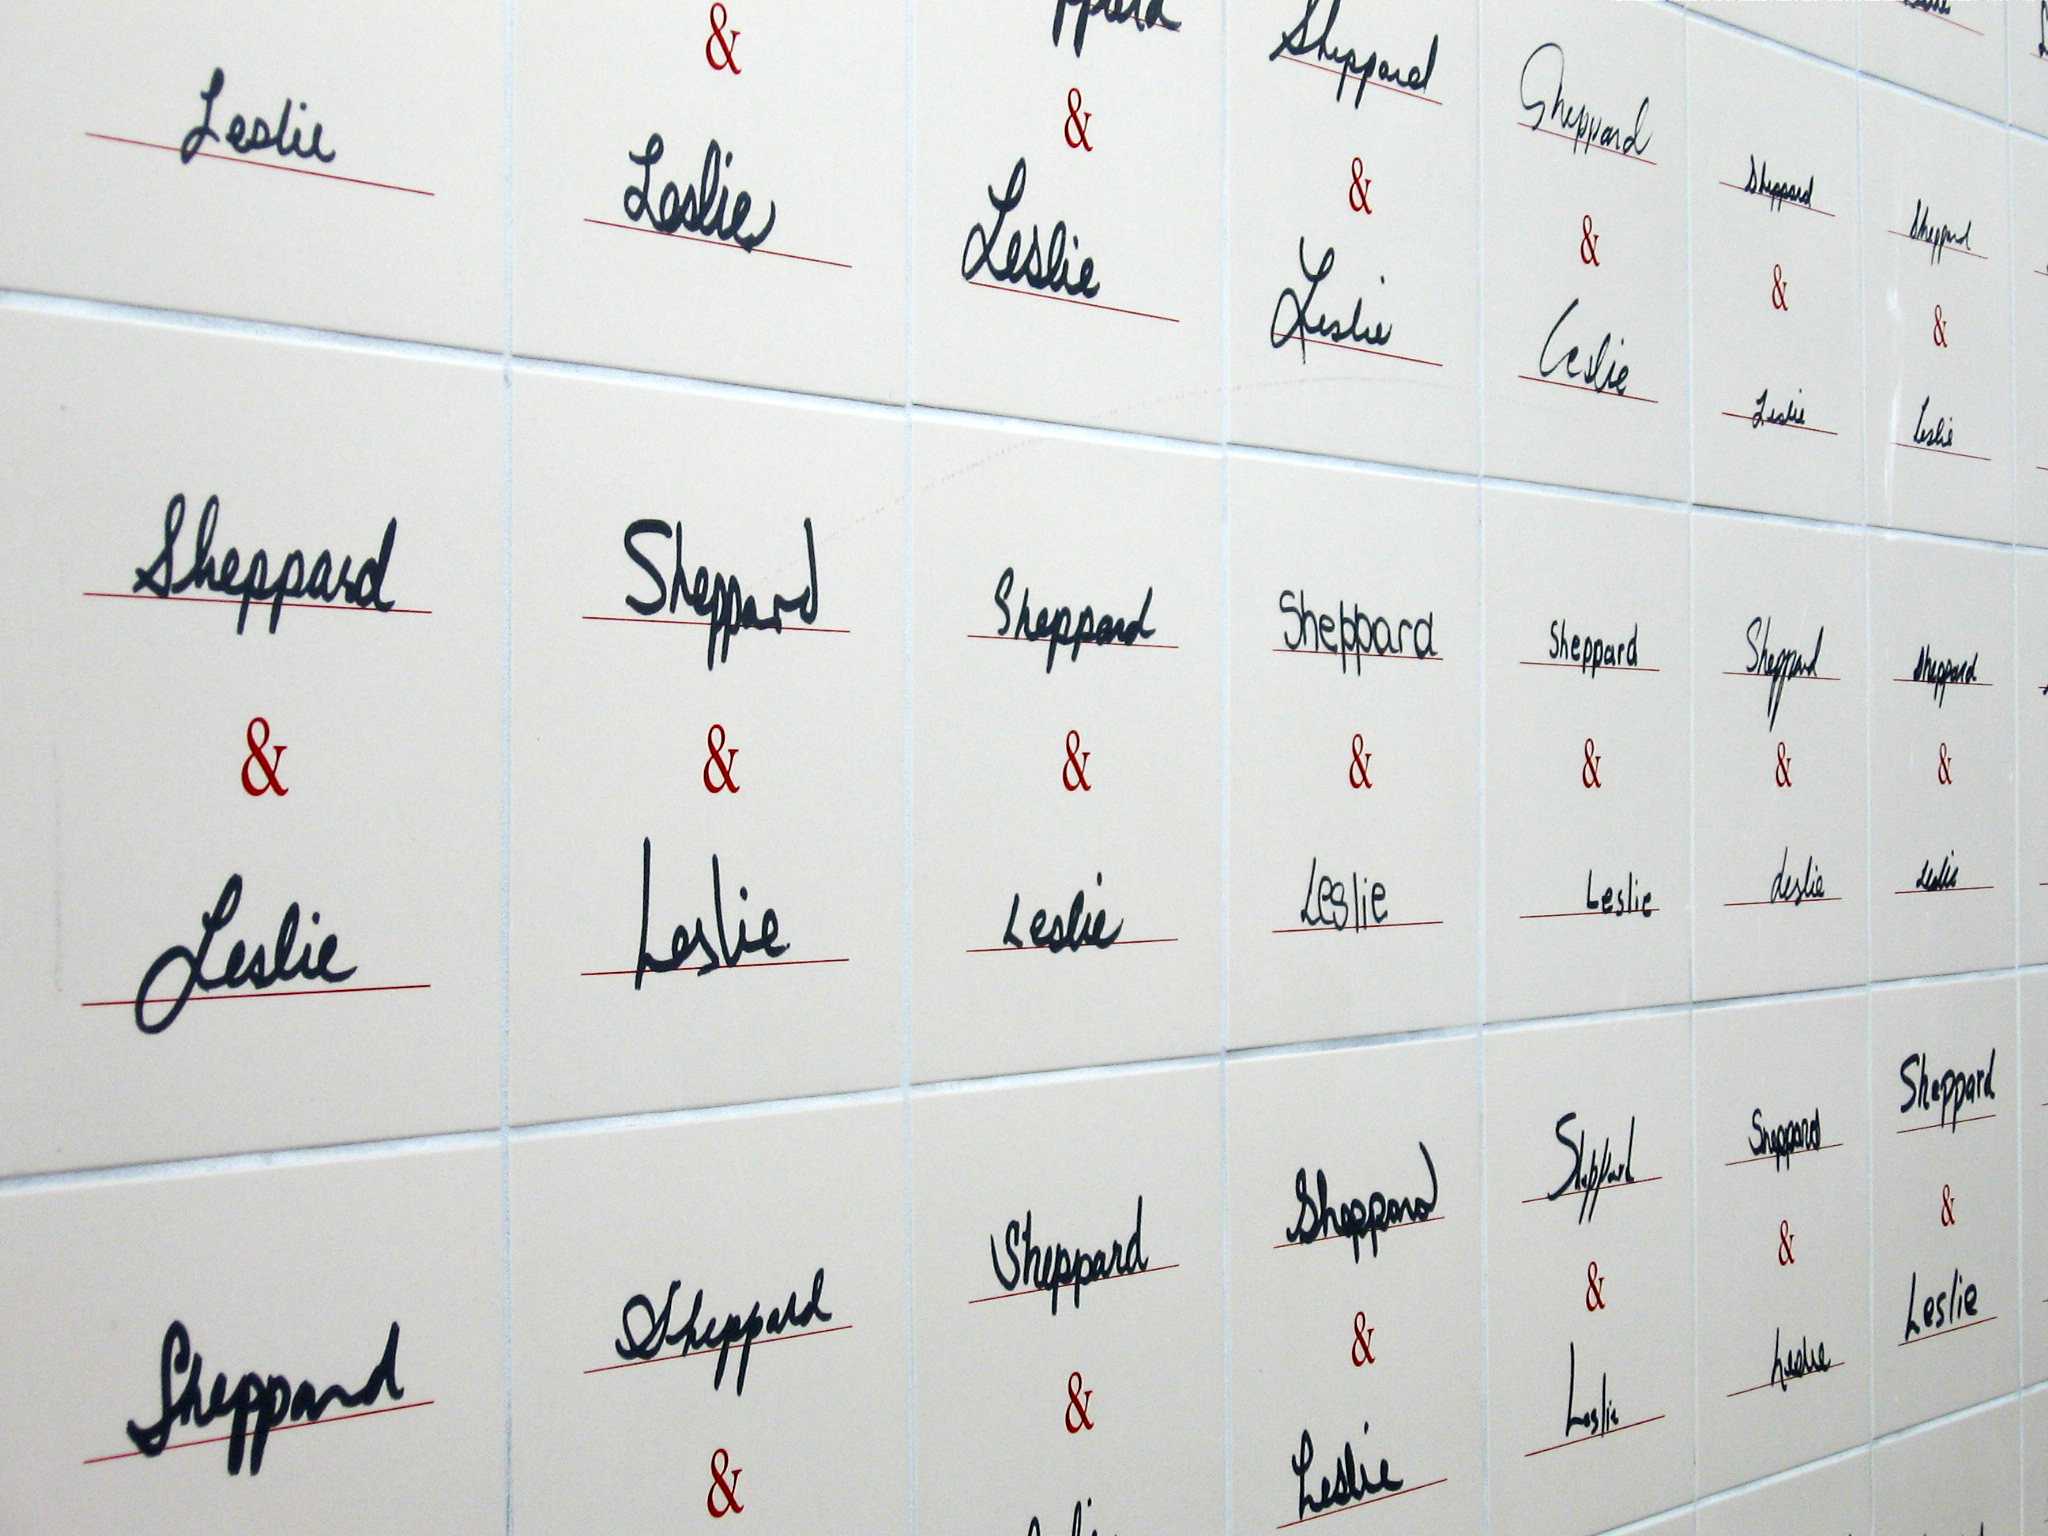 Leslie
&
Leslie
&
Leslie
Sheppard
&
Leslie
Sheppard
&
Leslie
Sheppard
&
Leslie
Sheppard
&
Leslie
Sheppard
&
Leslie
Sheppard
&
Leslie
Sheppard
&
Leslie
Sheppard
&
Leslie
Sheppard
&
Leslie
Sheppard
&
Leslie
Sheppard
&
Leslie
Sheppard
&
Sheppard
&
Sheppard
&
Sheppard
&
Leslie
Sheppard
&
Leslie
Sheppard
&
Leslie
Sheppard
&
Leslie